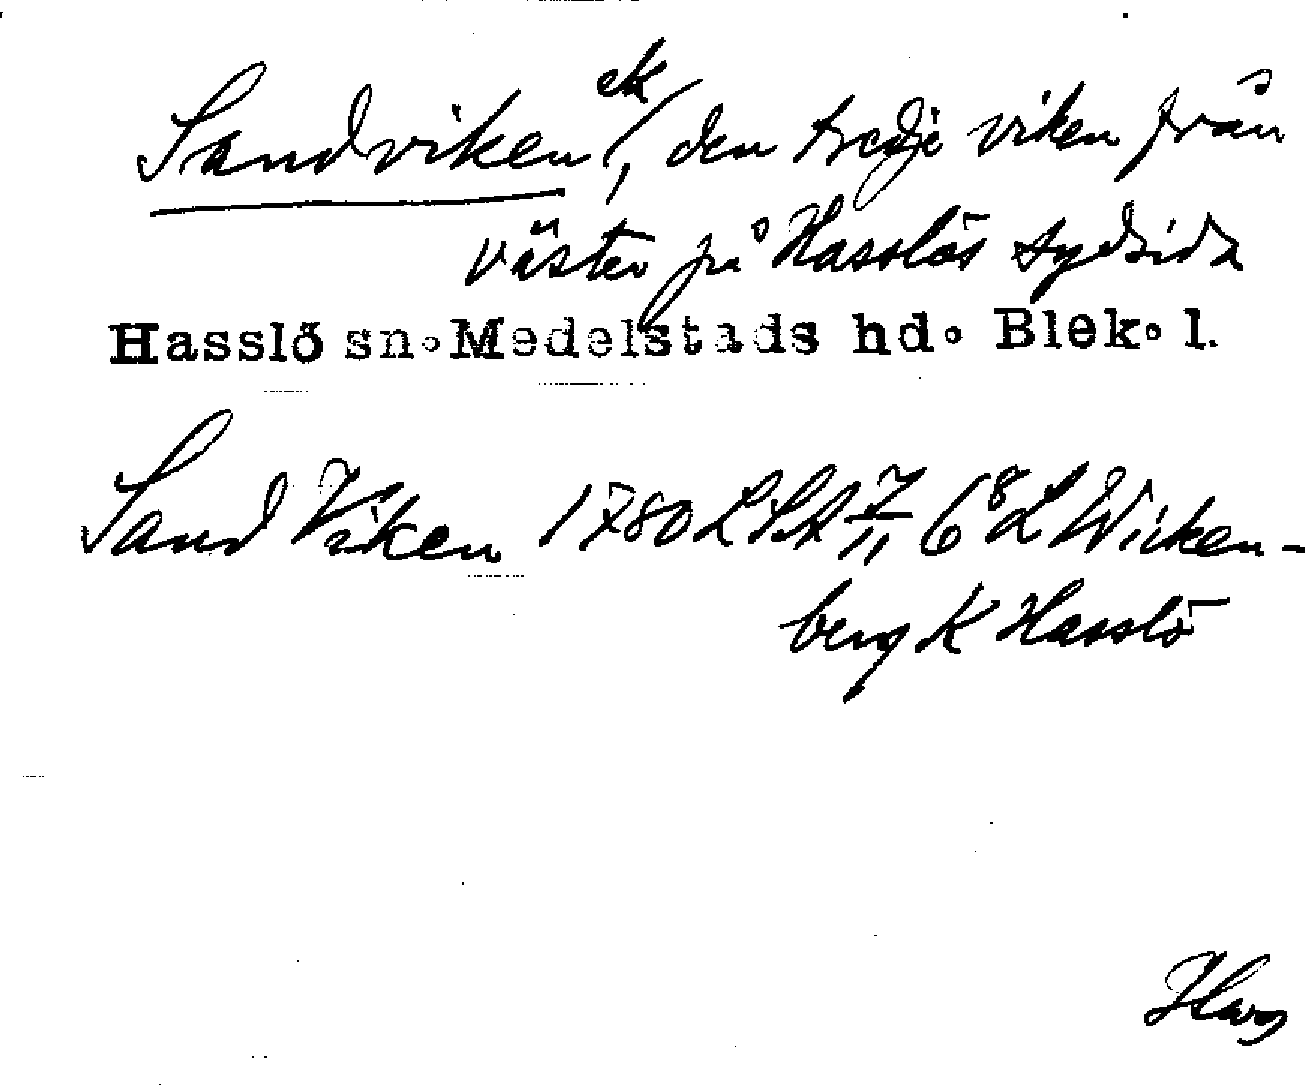 Sandviken ek, den tredje viken från
väster på Hasslös sydsida
Hasslö sn. Medelstads hd. Blek. l.
Sand Viken 1780 LSA 7/11 6⁸ L Wicken-
berg K Hasslö